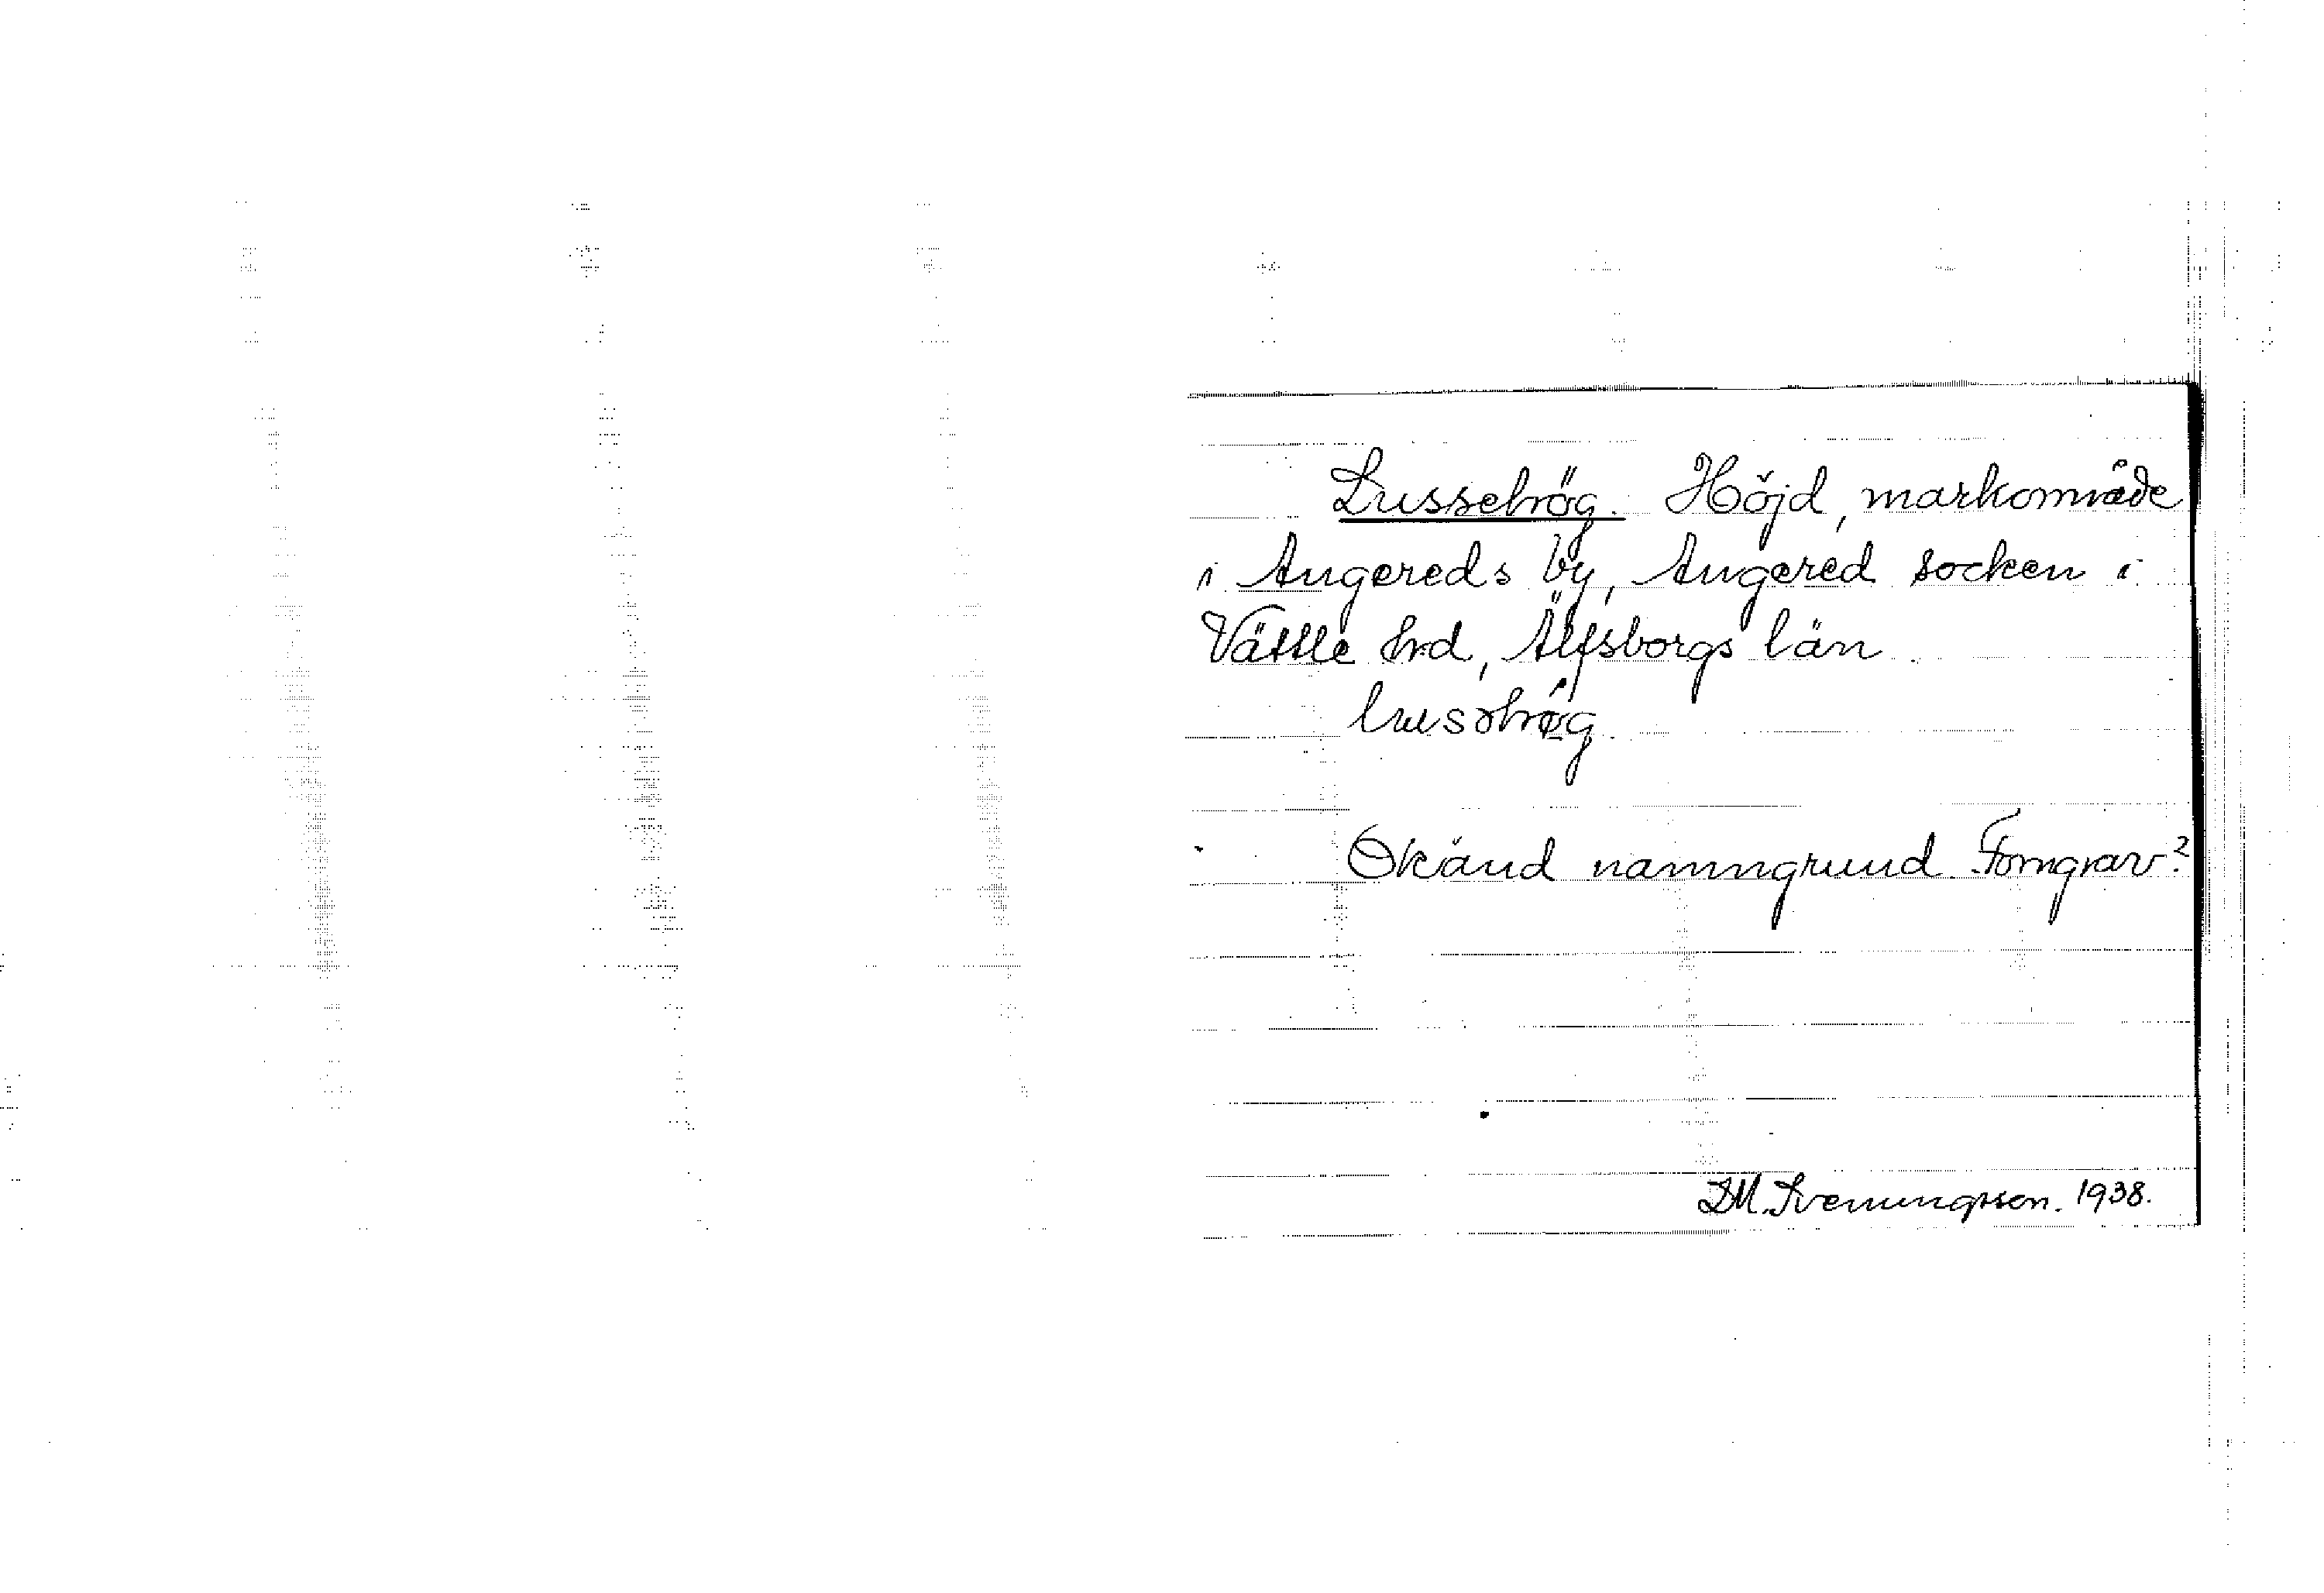 Lussehög. Höjd, markområde
i Angereds by, Angered socken i
Vättle hrd, Älfsborgs län
Okänd namngrund. Forngrav?
D.M. Sveningsson. 1938.